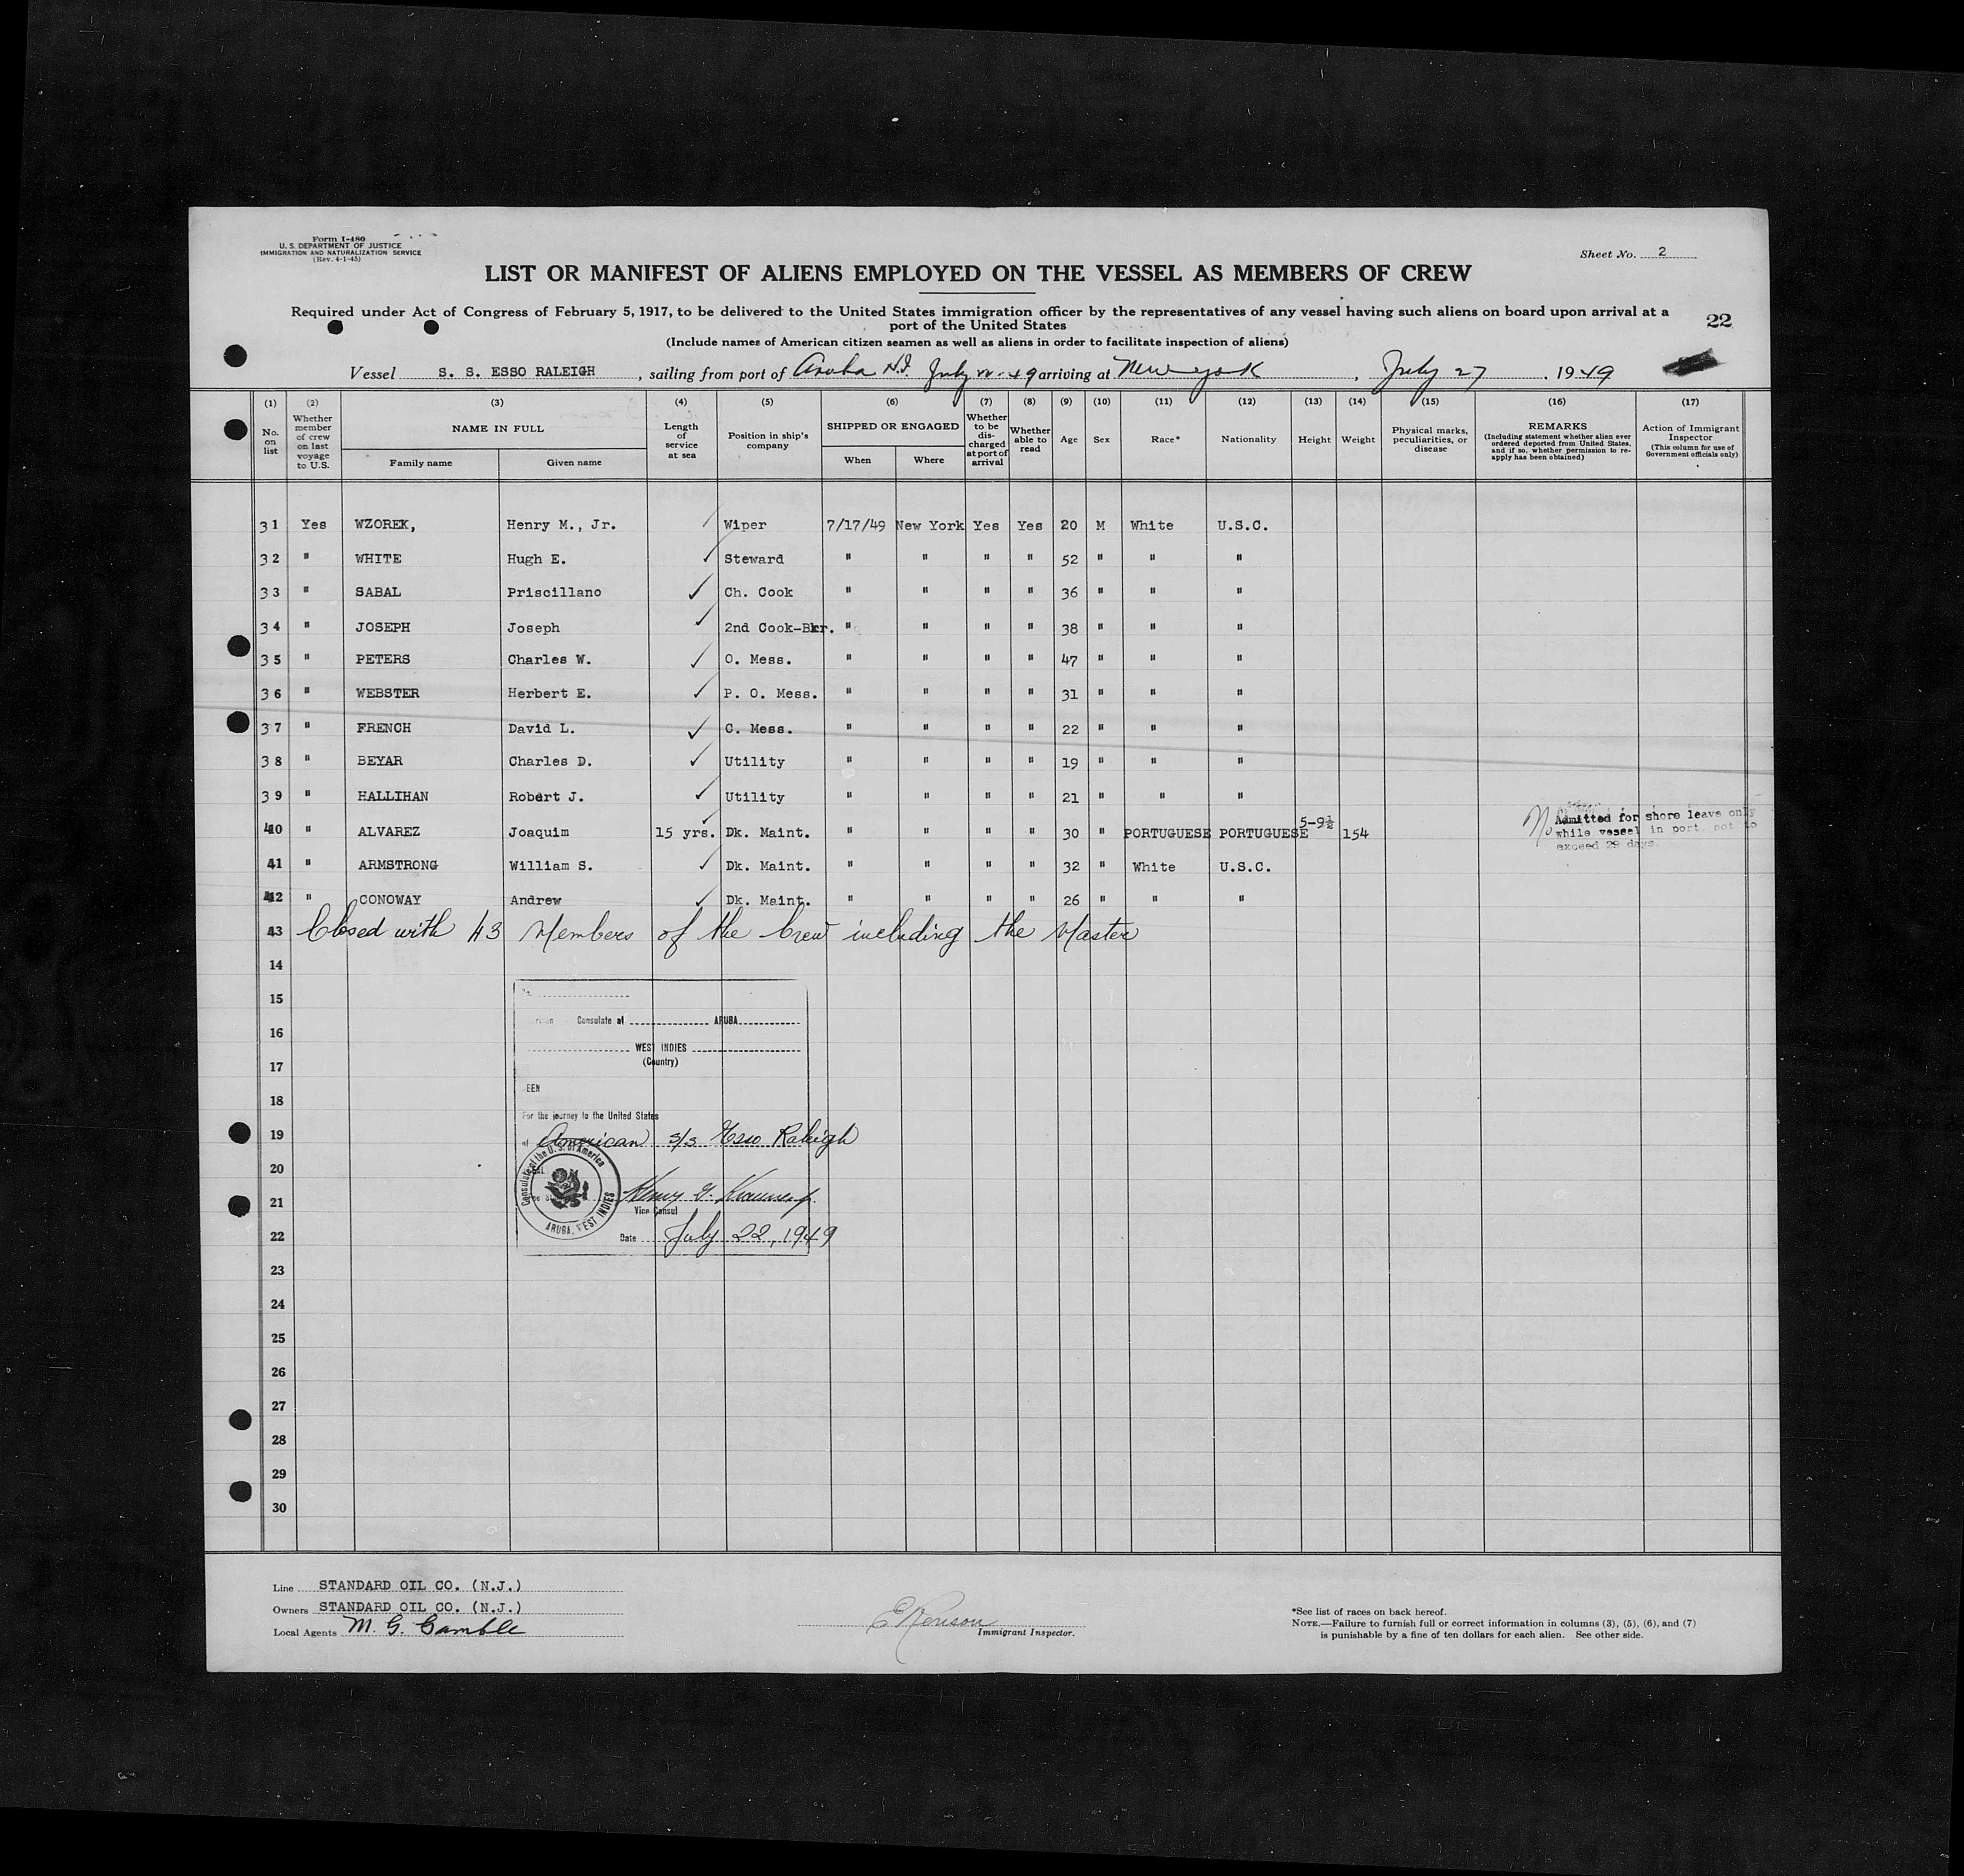 Form I-480
U. S. DEPARTMENT OF JUSTICE
IMMIGRATION AND NATURALIZATION SERVICE
(Rev. 4-1-45)
Sheet No. 2
LIST OR MANIFEST OF ALIENS EMPLOYED ON THE VESSEL AS MEMBERS OF CREW
Required under Act of Congress of February 5, 1917, to be delivered to the United States immigration officer by the representatives of any vessel having such aliens on board upon arrival at a
port of the United States
22
(Include names of American citizen seamen as well as aliens in order to facilitate inspection of aliens)
Vessel S. S. ESSO RALEIGH, sailing from port of Aruba N.I. July 22-49 arriving at New York, July 27, 1949
(1) (2) (3) (4) (5) (6) (7) (8) (9) (10) (11) (12) (13) (14) (15) (16) (17)
No. on list
Whether member of crew on last voyage to U.S.
NAME IN FULL
Family name
Given name
Length of service at sea
Position in ship's company
SHIPPED OR ENGAGED
When
Where
Whether to be discharged at port of arrival
Whether able to read
Age
Sex
Race*
Nationality
Height
Weight
Physical marks, peculiarities, or disease
REMARKS
(Including statement whether alien ever ordered deported from United States, and if so, whether permission to reapply has been obtained)
Action of Immigrant Inspector
(This column for use of Government officials only)
31 Yes WZOREK, Henry M., Jr. Wiper 7/17/49 New York Yes Yes 20 M White U.S.C.
32 " WHITE Hugh E. Steward " " " " 52 " " "
33 " SABAL Priscillano Ch. Cook " " " " 36 " " "
34 " JOSEPH Joseph 2nd Cook-Bkr. " " " " 38 " " "
35 " PETERS Charles W. O. Mess. " " " " 47 " " "
36 " WEBSTER Herbert E. P. O. Mess. " " " " 31 " " "
37 " FRENCH David L. C. Mess. " " " " 22 " " "
38 " BEYAR Charles D. Utility " " " " 19 " " "
39 " HALLIHAN Robert J. Utility " " " " 21 " " "
40 " ALVAREZ Joaquim 15 yrs. Dk. Maint. " " " " 30 " PORTUGUESE PORTUGUESE 5-9½ 154
Admitted for shore leave only
while vessel in port, not to
exceed 29 days.
41 " ARMSTRONG William S. Dk. Maint. " " " " 32 " White U.S.C.
42 " CONOWAY Andrew Dk. Maint. " " " " 26 " " "
43 Closed with 43 Members of the Crew including the Master
14
15
16
17
18
19
20
21
22
23
24
25
26
27
28
29
30
Consulate at ARUBA
WEST INDIES
(Country)
For the journey to the United States
of American s/s Esso Raleigh
Consulate of the U. S. of America
ARUBA, WEST INDIES
Vice Consul
Date July 22, 1949
Line STANDARD OIL CO. (N.J.)
Owners STANDARD OIL CO. (N.J.)
Local Agents M. G. Gamble
Immigrant Inspector.
*See list of races on back hereof.
NOTE.—Failure to furnish full or correct information in columns (3), (5), (6), and (7)
is punishable by a fine of ten dollars for each alien. See other side.